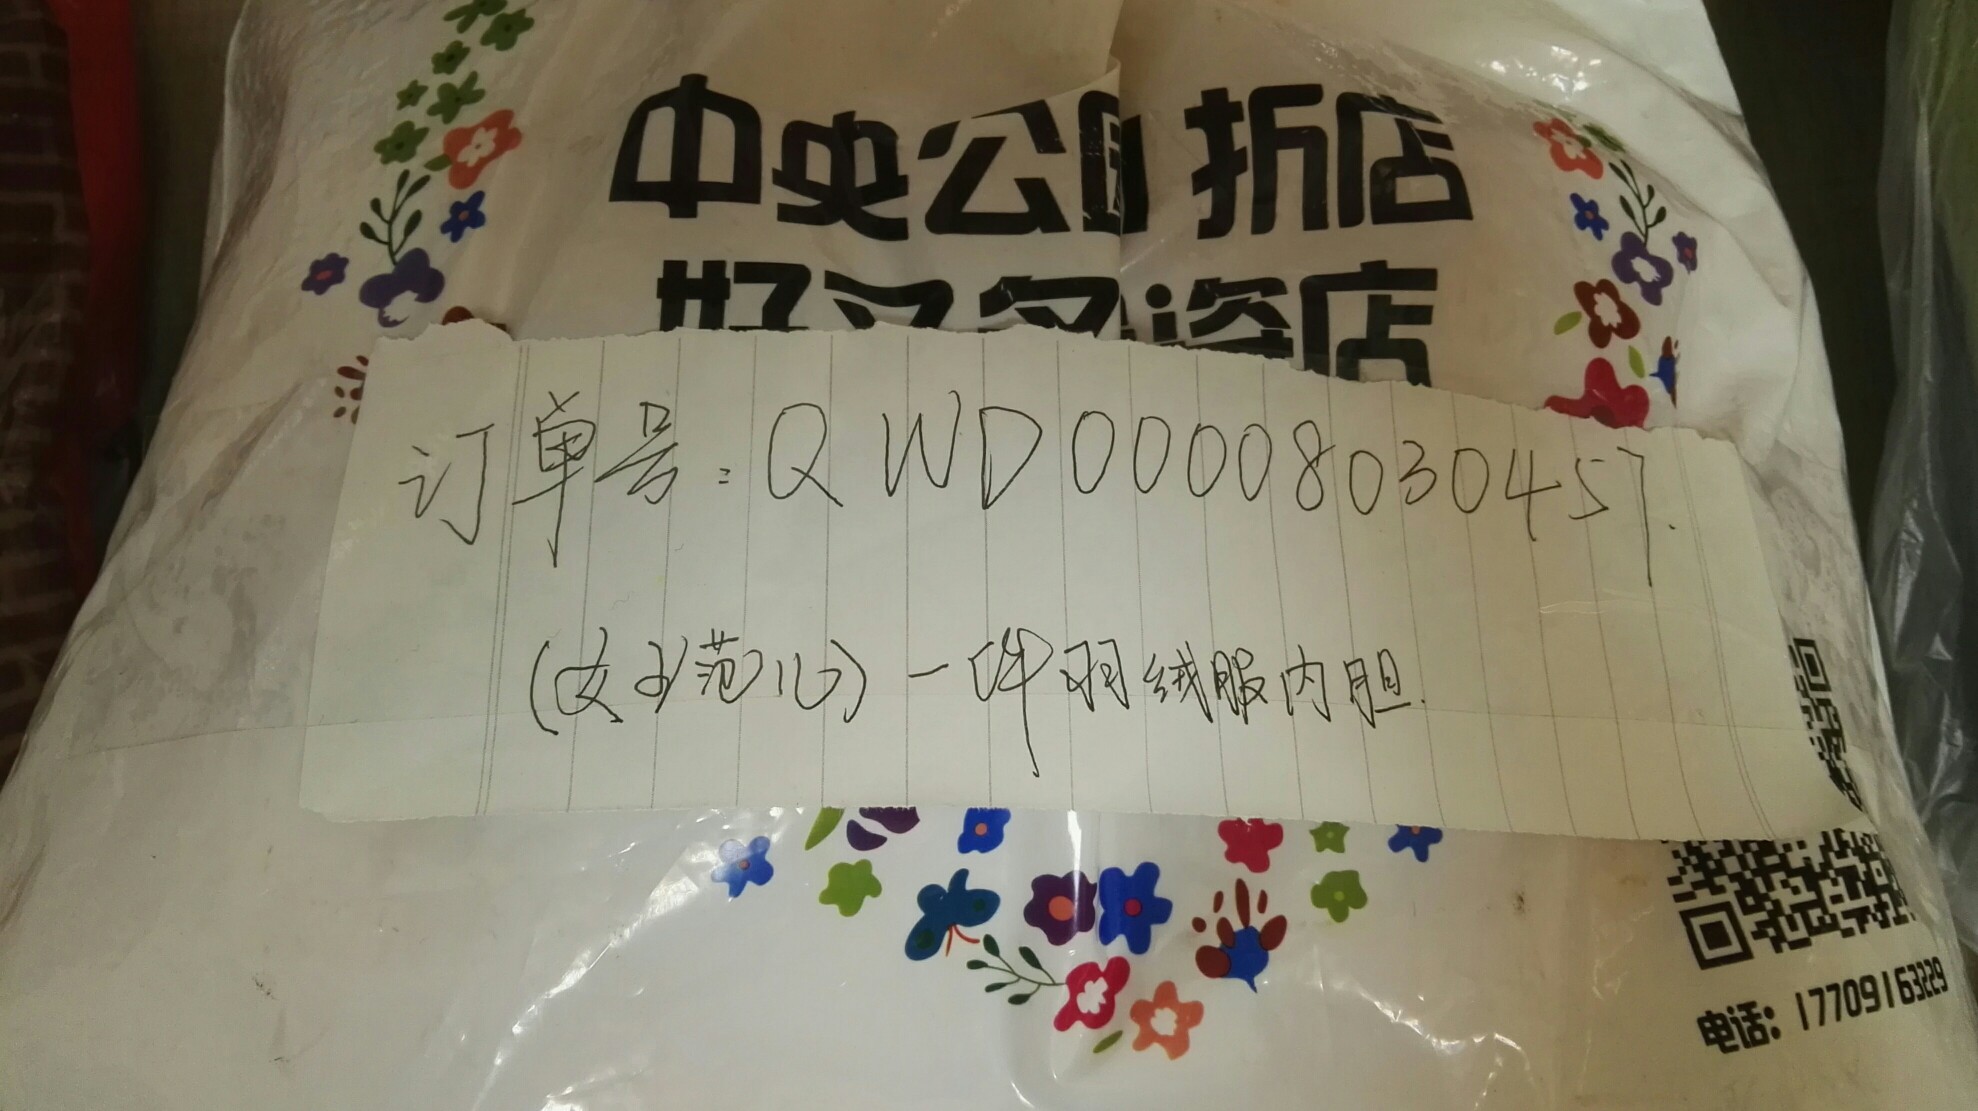 中央公园折店
好又多瓷店
订单号：QWD00008030457.
(女子范儿)一件羽绒服内胆.
电话：17709163229